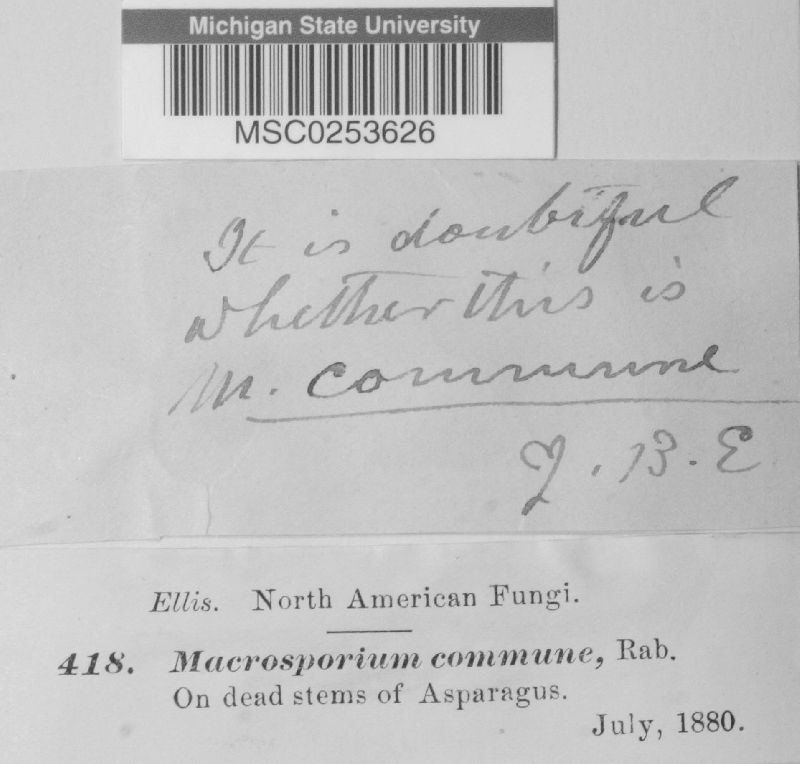 Michigan State University
MSC0253626
It is doubtful
whether this is
M. commune
J. B. E
Ellis. North American Fungi.
418. Macrosporium commune, Rab.
On dead stems of Asparagus.
July, 1880.